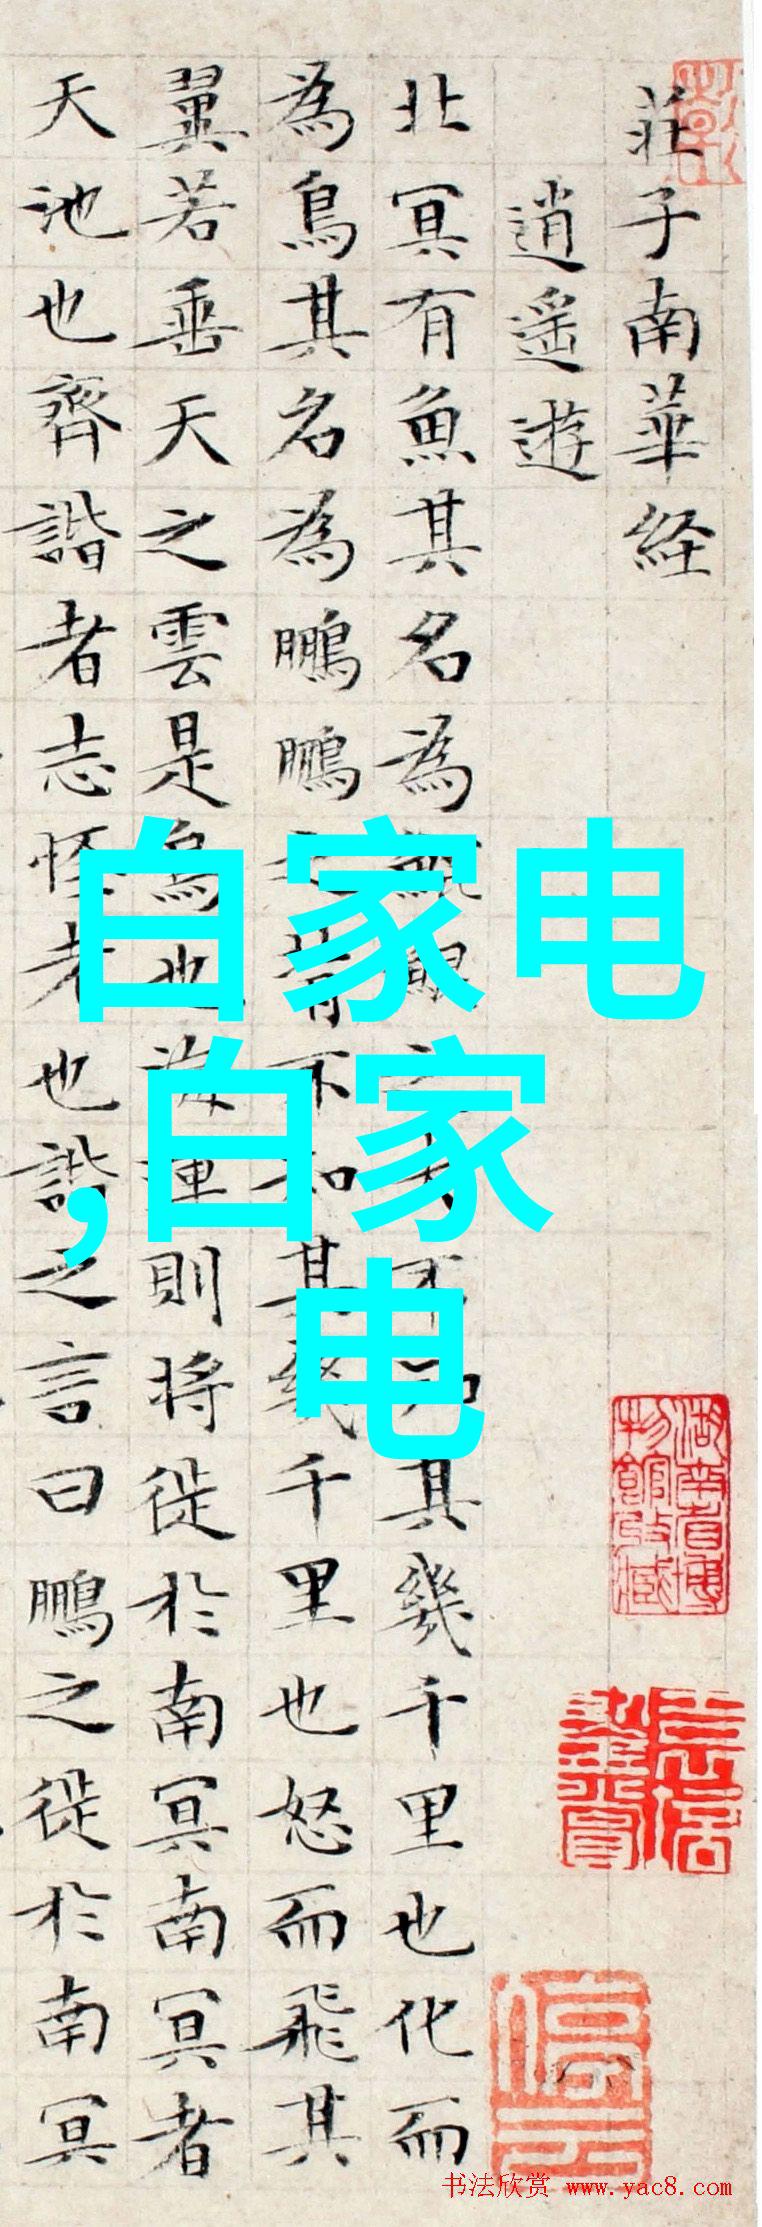 莊子南華経
逍遥遊
北冥有魚其名為鯤鯤之大不知其幾千里也化而
為鳥其名為鵬鵬之背不知其幾千里也怒而飛其
翼若垂天之雲是鳥也海運則将徙於南冥南冥者
天池也齊諧者志怪者也諧之言曰鵬之徙於南冥
白家电
,白家
电
湖南省博
物館收藏
书法欣赏 www.yac8.com